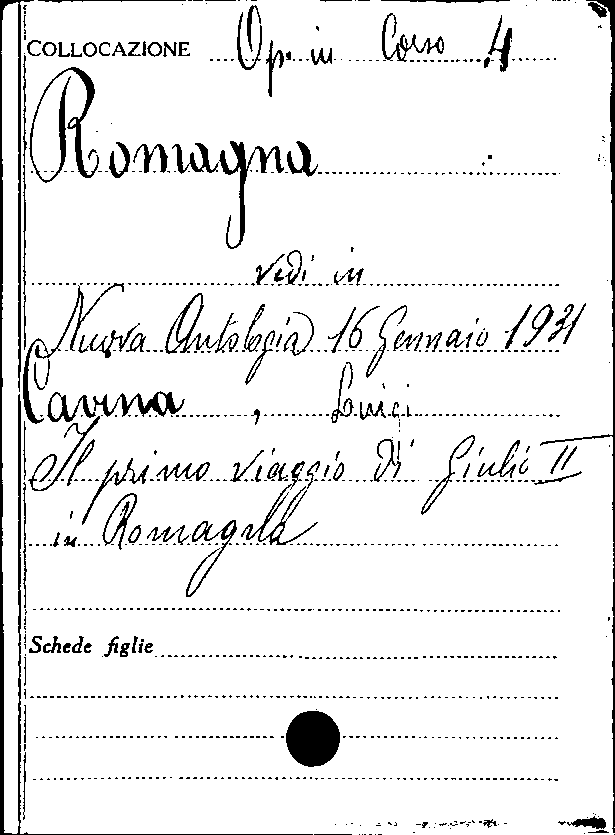 COLLOCAZIONE Op. in Corso 4
Romagna
vedi in
Nuova Antologia 16 Gennaio 1931
Cavina, Luigi
Il primo viaggio di Giulio II
in Romagna
Schede figlie